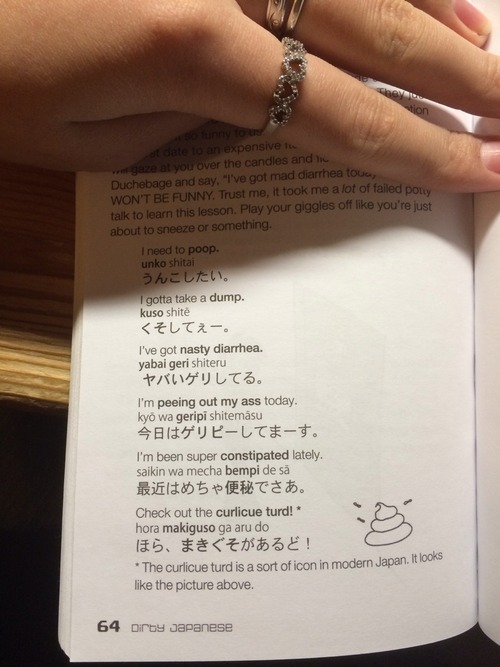 They ju
so funny to us
date to an expensive
gaze at you over the candles and
Duchebage and say, "I've got mad diarrhea toda
WON'T BE FUNNY. Trust me, it took me a lot of failed potty
talk to learn this lesson. Play your giggles off like you're just
about to sneeze or something.
I need to poop.
unko shitai
うんこしたい。
I gotta take a dump.
kuso shitē
くそしてぇー。
I've got nasty diarrhea.
yabai geri shiteru
ヤバいゲリしてる。
I'm peeing out my ass today.
kyō wa geripī shitemāsu
今日はゲリピーしてまーす。
I'm been super constipated lately.
saikin wa mecha bempi de sā
最近はめちゃ便秘でさあ。
Check out the curlicue turd! *
hora makiguso ga aru do
ほら、まきぐそがあるど！
* The curlicue turd is a sort of icon in modern Japan. It looks
like the picture above.
64 Dirty Japanese